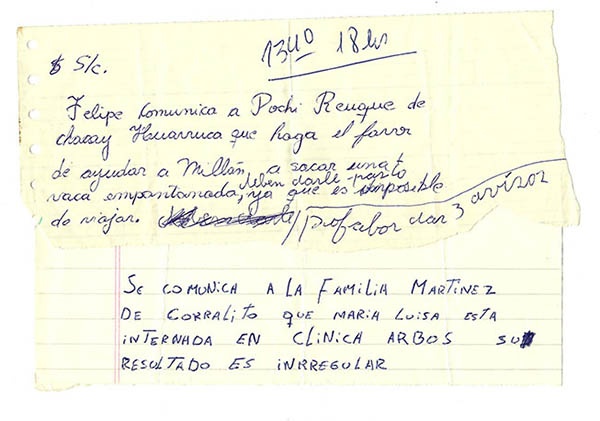 1340 18 hs
$ S/c.
Felipe comunica a Pochi Reuque de
chacay Huarruca que haga el favor
de ayudar a Millán, a sacar una
vaca empantanada, deben darle pasto ya que es imposible
de viajar. / Profabor dar 3 avizoz
SE COMUNICA A LA FAMILIA MARTINEZ
DE CORRALITO QUE MARIA LUISA ESTA
INTERNADA EN CLINICA ARBOS SU
RESULTADO ES INRREGULAR